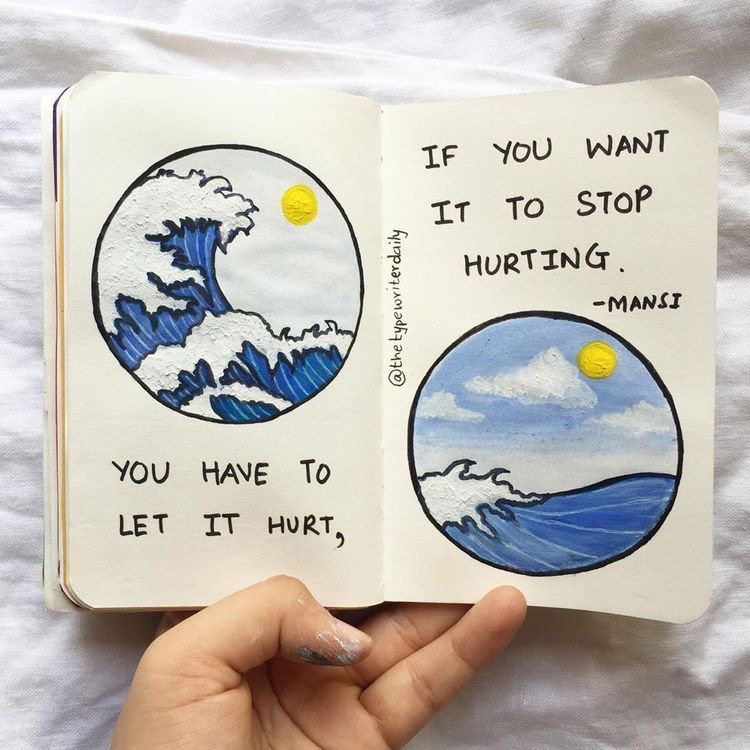 YOU HAVE TO
LET IT HURT,
@thetypewriterdaily
IF YOU WANT
IT TO STOP
HURTING.
-MANSI